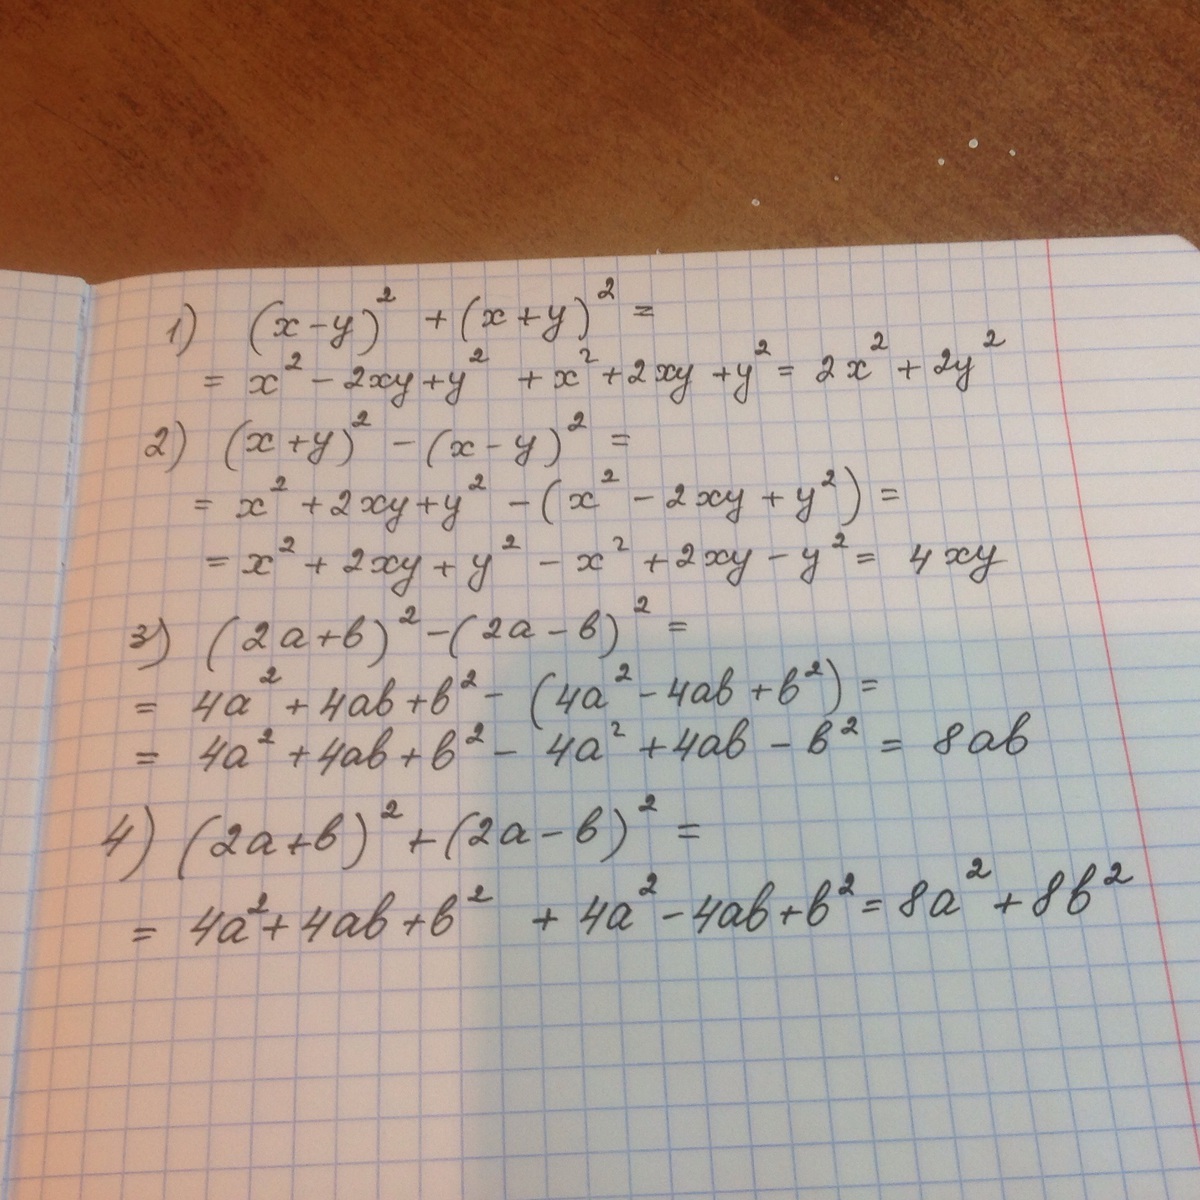 1) (x-y)² + (x+y)² =
= x² - 2xy + y² + x² + 2xy + y² = 2x² + 2y²
2) (x+y)² - (x-y)² =
= x² + 2xy + y² - (x² - 2xy + y²) =
= x² + 2xy + y² - x² + 2xy - y² = 4xy
3) (2a+b)² - (2a-b)² =
= 4a² + 4ab + b² - (4a² - 4ab + b²) =
= 4a² + 4ab + b² - 4a² + 4ab - b² = 8ab
4) (2a+b)² + (2a-b)² =
= 4a² + 4ab + b² + 4a² - 4ab + b² = 8a² + 8b²